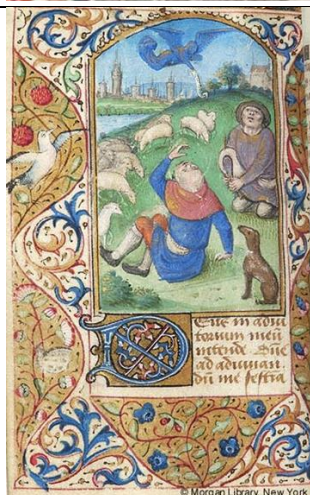 Eus in adiu
torium meū
intende. Dn̄e
ad adiuuan.
dū me festīa
© Morgan Library, New York